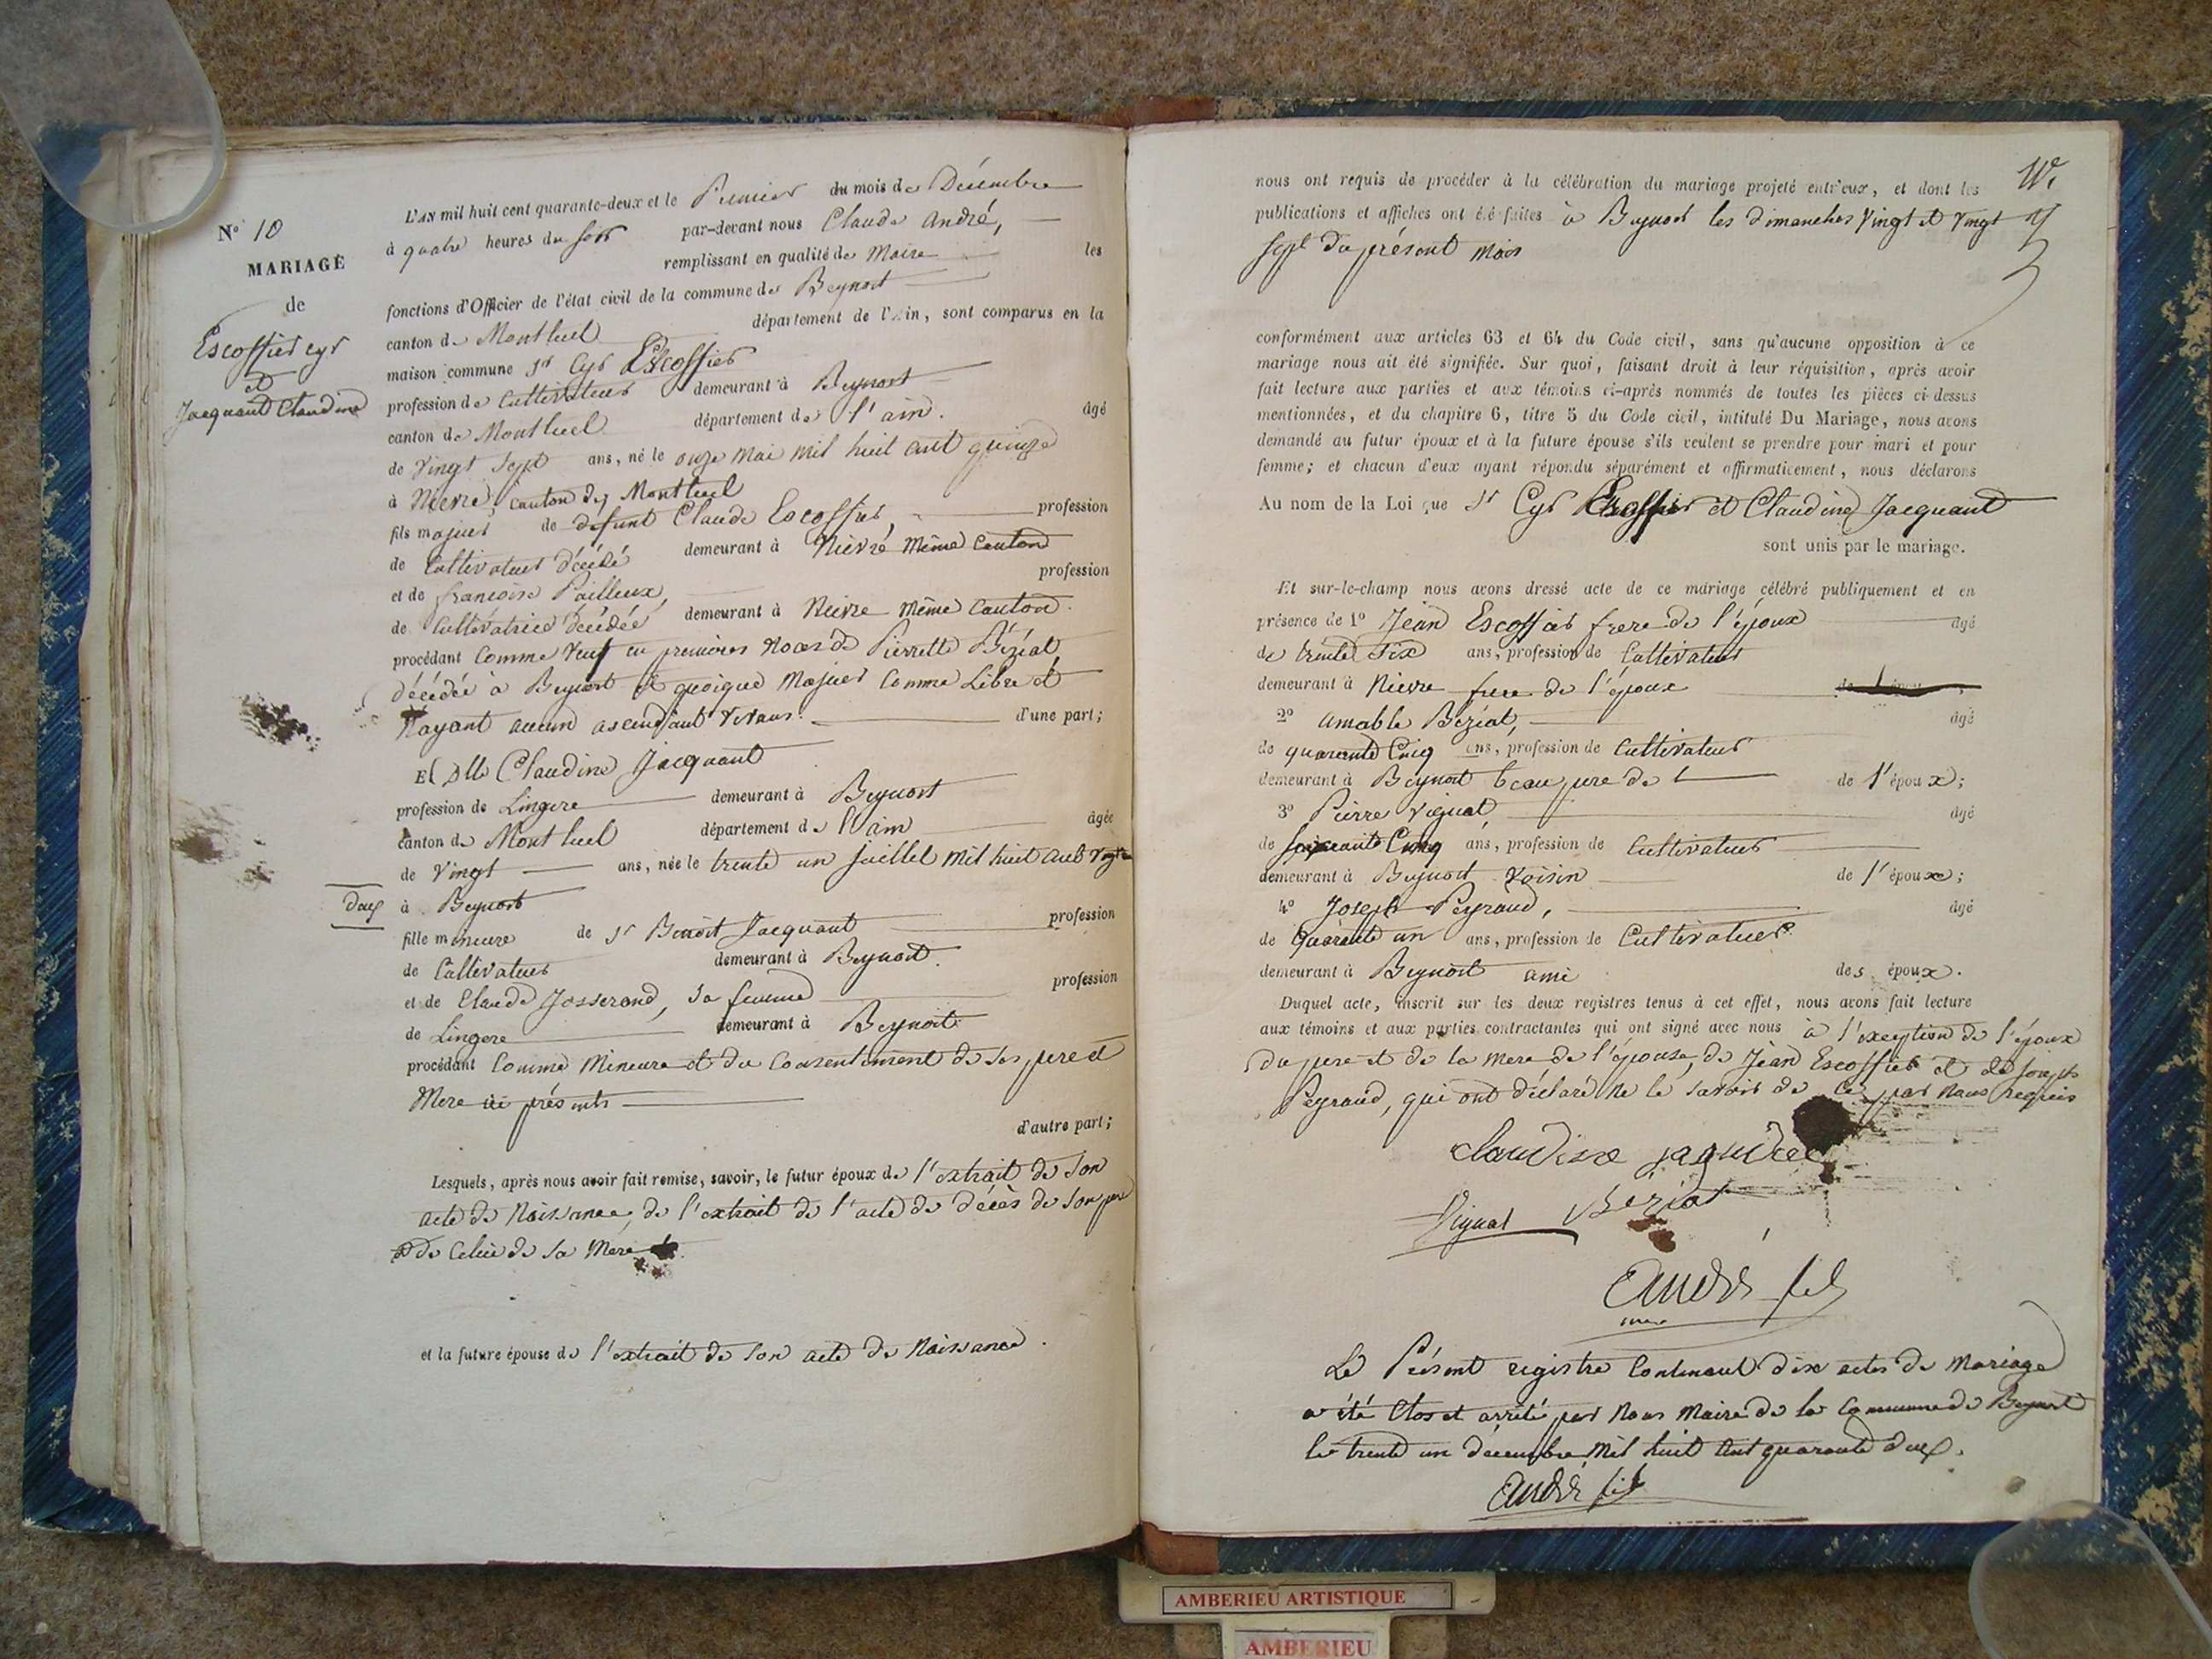 N° 10
MARIAGE
de
Escoffier Cyr
et
Jacquant Claudine
L'AN mil huit cent quarante-deux et le Premier du mois de Décembre
à quatre heures du soir par-devant nous Claude André,
remplissant en qualité de Maire les
fonctions d'Officier de l'état civil de la commune de Beynost
canton de Montluel département de l'Ain, sont comparus en la
maison commune Sr Cyr Escoffier
profession de Cultivateur demeurant à Beynost
canton de Montluel département de l'ain. âgé
de vingt sept ans, né le onze Mai mil huit cent quinze
à Nievre, canton de Montluel
fils majeur de defunt Claude Escoffier, profession
de Cultivateur décédé demeurant à Nievre même canton
et de francoise Pailleux, profession
de Cultivatrice décédée demeurant à Nievre même canton.
procédant comme veuf en premières noces de Pierrette Béziat
décédée à Beynost et quoique Majeur comme Libre et
Nayant aucun ascendant vivans. d'une part;
Et Dlle Claudine Jacquant
profession de Lingere demeurant à Beynost
canton de Montluel département de l'ain âgée
de vingt ans, née le trente un juillet mil huit cent vingt
deux à Beynost
fille mineure de Sr Benoit Jacquant profession
de Cultivateur demeurant à Beynost.
et de Claude Josserand, sa femme profession
de Lingere demeurant à Beynost
procédant Comme Mineure et du consentement de ses pere et
Mere ici présents
d'autre part;
Lesquels, après nous avoir fait remise, savoir, le futur époux de l'extrait de son
acte de Naissance, de l'extrait de l'acte de décès de son pere
et de Celui de sa Mere
et la future épouse de l'extrait de son acte de Naissance.
nous ont requis de procéder à la célébration du mariage projeté entr'eux, et dont les
publications et affiches ont été faites à Beynost les dimanches vingt et vingt
sept du présent mois
conformément aux articles 63 et 64 du Code civil, sans qu'aucune opposition à ce
mariage nous ait été signifiée. Sur quoi, faisant droit à leur réquisition, après avoir
fait lecture aux parties et aux témoins ci-après nommés de toutes les pièces ci-dessus
mentionnées, et du chapitre 6, titre 5 du Code civil, intitulé Du Mariage, nous avons
demandé au futur époux et à la future épouse s'ils veulent se prendre pour mari et pour
femme; et chacun d'eux ayant répondu séparément et affirmativement, nous déclarons
Au nom de la Loi que Sr Cyr Escoffier et Claudine Jacquant
sont unis par le mariage.
Et sur-le-champ nous avons dressé acte de ce mariage célébré publiquement et en
présence de 1° Jean Escoffier frere de l'époux âgé
de trente six ans, profession de Cultivateur
demeurant à Nievre frere de l'époux
2° amable Béziat, âgé
de quarante Cinq ans, profession de Cultivateur
demeurant à Beynost beau pere de l' de l'époux;
3° Pierre Vignat, âgé
de soixante Cinq ans, profession de Cultivateur
demeurant à Beynost voisin de l'époux;
4° Joseph Peyraud, âgé
de quarante un ans, profession de Cultivateur
demeurant à Beynost ami des époux.
Duquel acte, inscrit sur les deux registres tenus à cet effet, nous avons fait lecture
aux témoins et aux parties contractantes qui ont signé avec nous à l'exeption de l'époux
du pere et de la mere de l'épouse, de Jean Escoffier et de Joseph
Peyraud, qui ont déclaré ne le savoir de ce par nous requis
Vignat Beziat
André fils
Le Présent registre Contenant dix actes de Mariage
a été Clos et arrêté par Nous Maire de la Commune de Beynost
le trente un décembre Mil huit Cent quarante deux.
André fils
AMBERIEU ARTISTIQUE
AMBERIEU